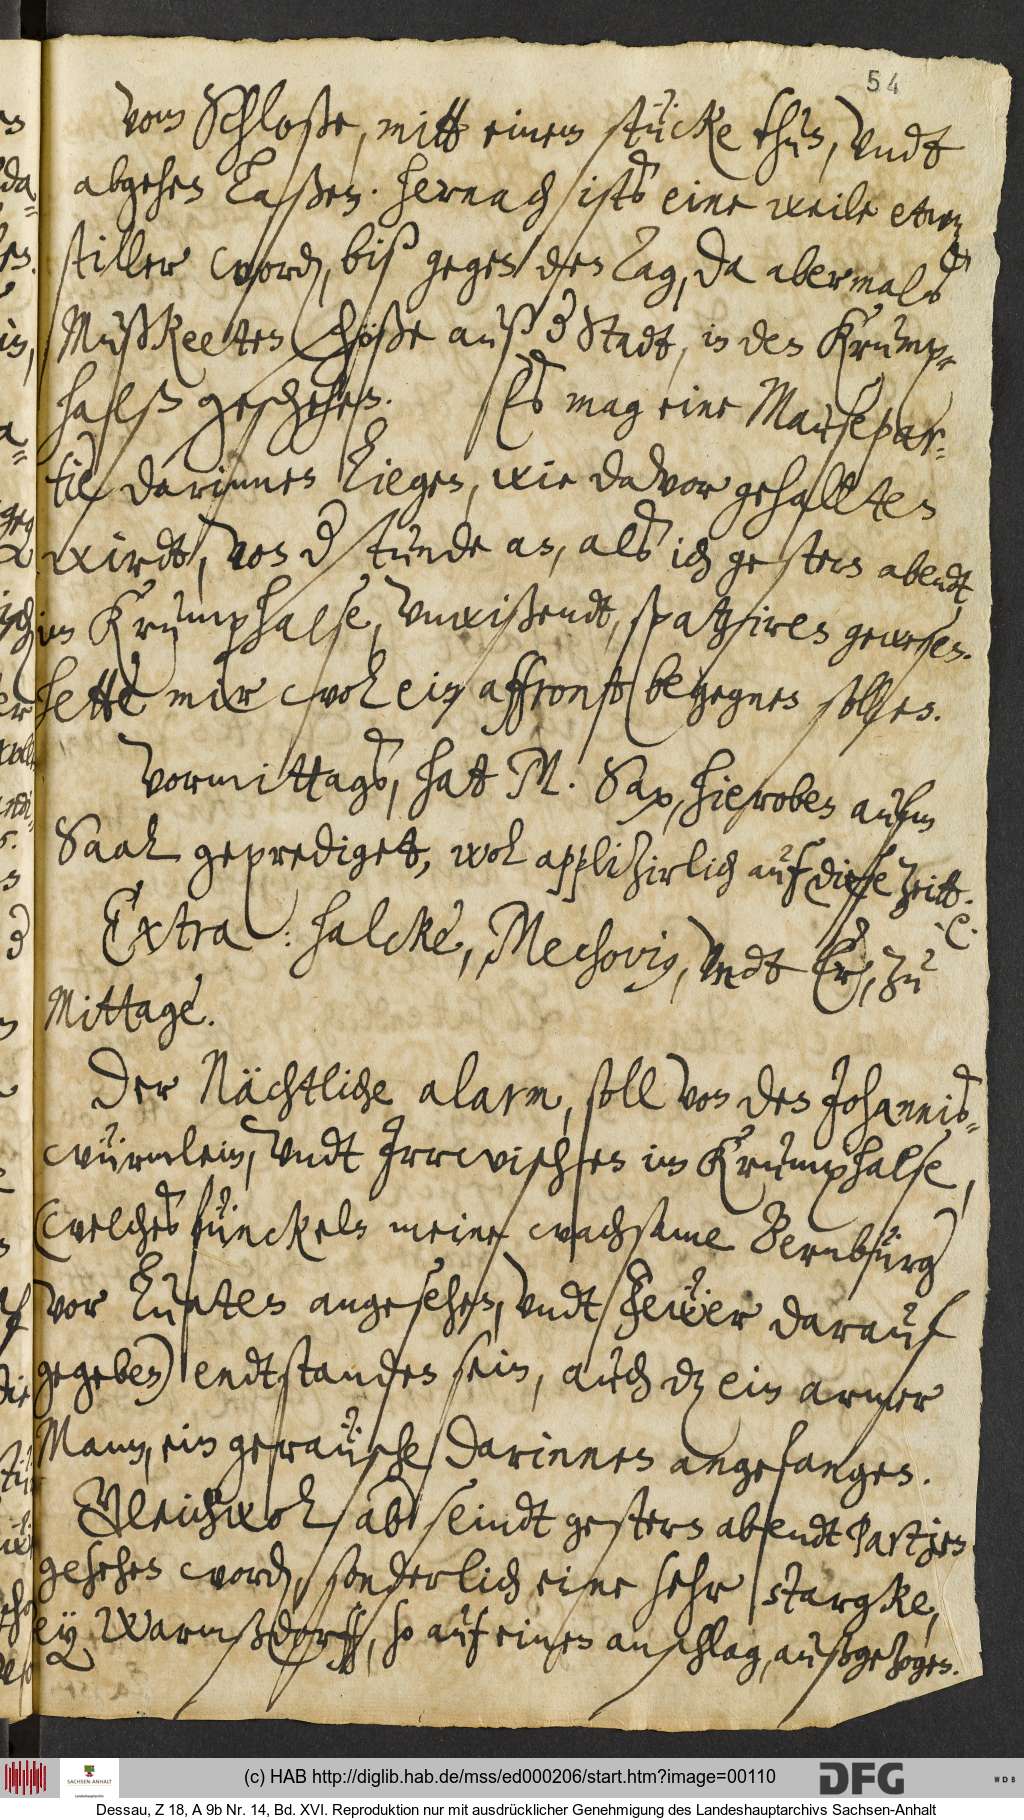 54
vom Schloße, mitt einem stücke thun, vndt
abgehen laßen. hernach ists eine weile etwz
stiller word, biß gegen den Tag, da abermals
Mußkeeten schöße auß d Stadt, in den Krump-
halß geschehen. Es mag eine Mausepar-
tie darinnen liegen, wie davor gehallten
wirdt, von d stunde an, als ich gestern abendt,
im Krumphalse, vnwißendt, spatziren gewesen.
hette mir wol ein affront begegnen sollen.
Vormittags, hat M. Sax, hieroben aufm
Saal geprediget, wol applizirlich auf diese zeitt.
Extra: halcke, Mechovig, vndt Er, zu
Mittage.
Der Nächtliche alarm, soll von den Johannis-
würmlein, vndt Irrwischen im Krumphalse,
(welches füncklen meine wachsame Bernburg
vor lunten angesehen, vndt Fewer darauf
gegeben) endtstanden sein, auch dz ein armer
Mann, ein geraüsche darinnen angefangen.
Gleichwol ab seindt gestern abendt Partien
gesehen word, sonderlich eine sehr starcke,
bey Warmßdorff, so auf einen anschlag, außgezogen.
(c) HAB http://diglib.hab.de/mss/ed000206/start.htm?image=00110
SACHSEN-ANHALT
DFG
WDB
Dessau, Z 18, A 9b Nr. 14, Bd. XVI. Reproduktion nur mit ausdrücklicher Genehmigung des Landeshauptarchivs Sachsen-Anhalt